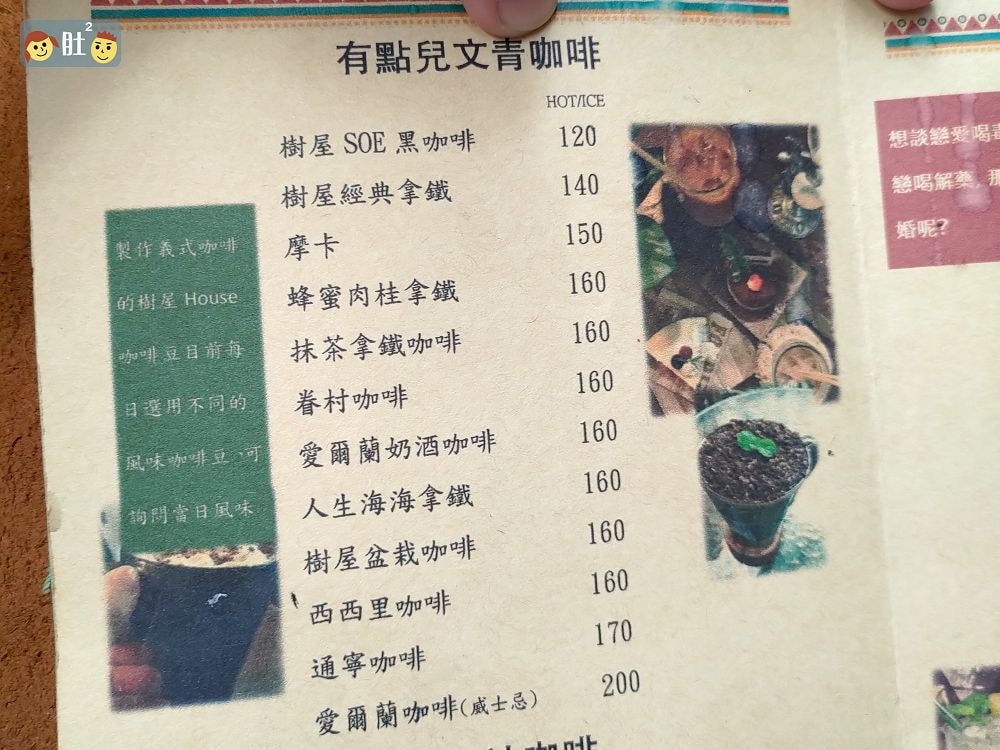 肚2
有點兒文青咖啡
HOT/ICE
樹屋 SOE 黑咖啡 120
樹屋經典拿鐵 140
摩卡 150
蜂蜜肉桂拿鐵 160
抹茶拿鐵咖啡 160
眷村咖啡 160
愛爾蘭奶酒咖啡 160
人生海海拿鐵 160
樹屋盆栽咖啡 160
西西里咖啡 160
通寧咖啡 170
愛爾蘭咖啡(威士忌) 200
製作義式咖啡
的樹屋 House
咖啡豆目前每
日選用不同的
風味咖啡豆,可
詢問當日風味
想談戀愛喝毒
戀喝解藥, 那
婚呢?
咖啡